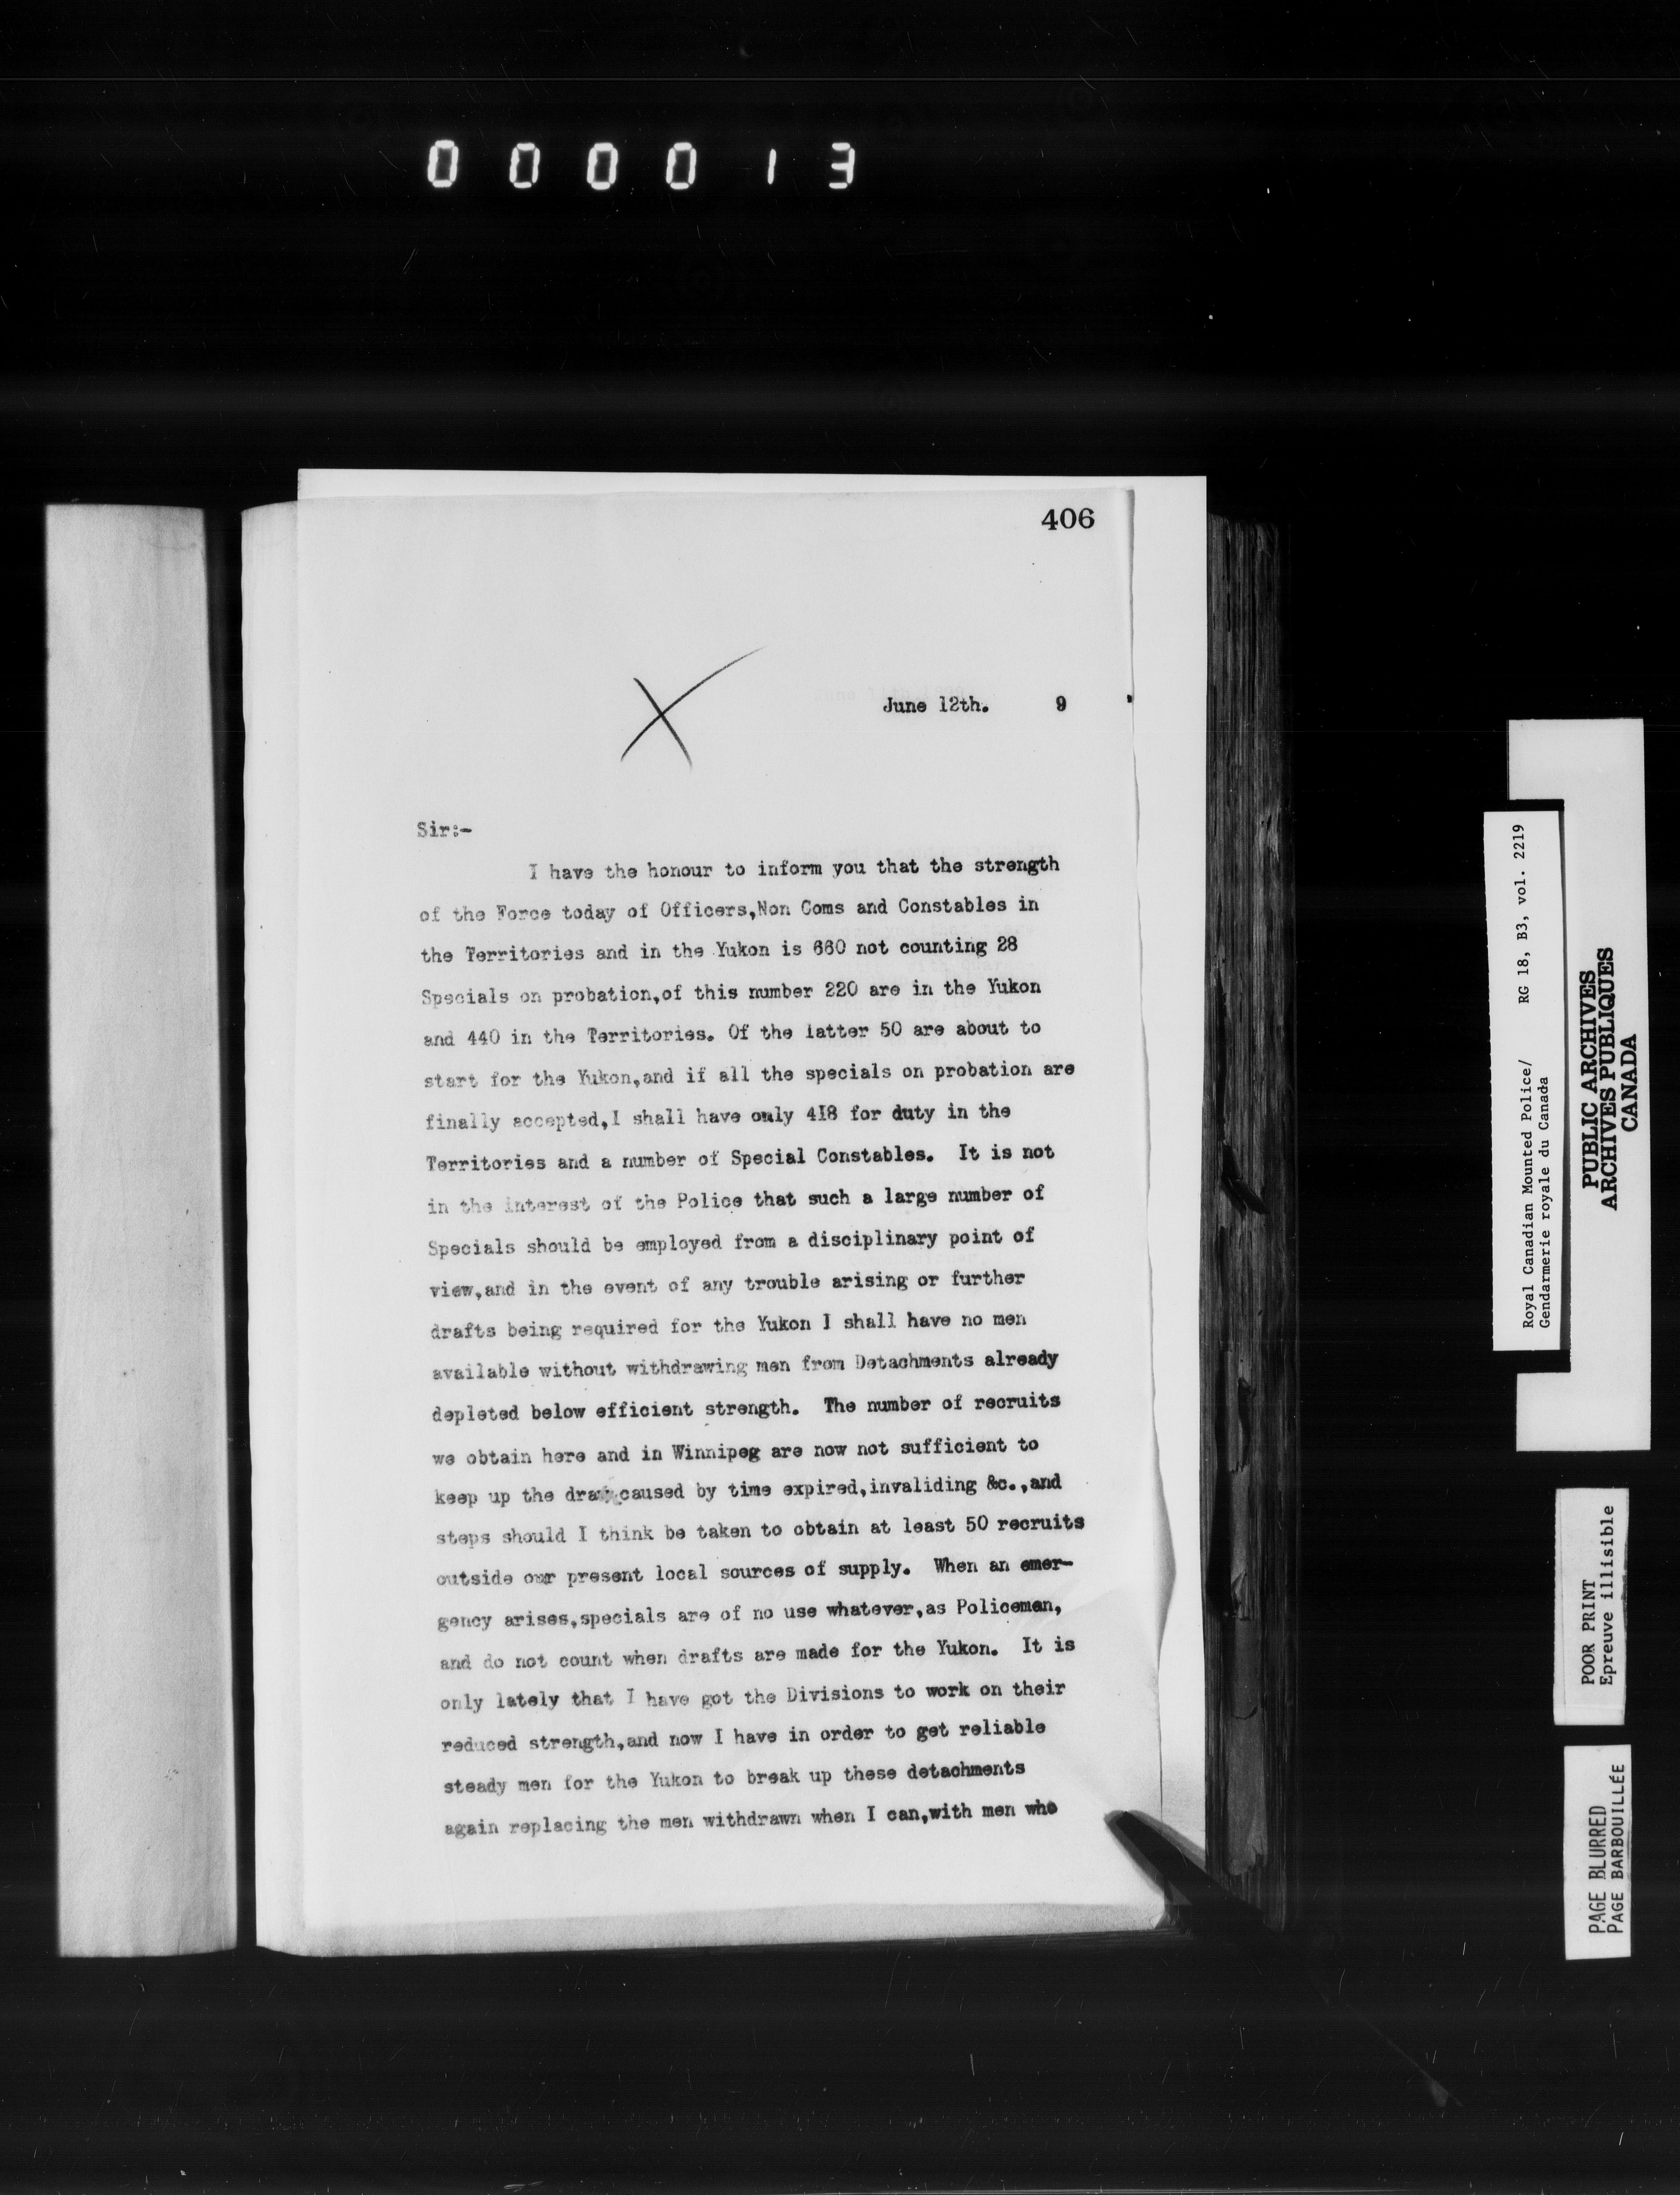 000013
406
June 12th. 9
Sir:-
I have the honour to inform you that the strength
of the Force today of Officers,Non Coms and Constables in
the Territories and in the Yukon is 660 not counting 28
Specials on probation,of this number 220 are in the Yukon
and 440 in the Territories. Of the latter 50 are about to
start for the Yukon,and if all the specials on probation are
finally accepted,I shall have only 418 for duty in the
Territories and a number of Special Constables. It is not
in the interest of the Police that such a large number of
Specials should be employed from a disciplinary point of
view,and in the event of any trouble arising or further
drafts being required for the Yukon I shall have no men
available without withdrawing men from Detachments already
depleted below efficient strength. The number of recruits
we obtain here and in Winnipeg are now not sufficient to
keep up the caused by time expired,invaliding &c.,and
steps should I think be taken to obtain at least 50 recruits
outside our present local sources of supply. When an emer-
gency arises,specials are of no use whatever,as Policeman,
and do not count when drafts are made for the Yukon. It is
only lately that I have got the Divisions to work on their
reduced strength,and now I have in order to get reliable
steady men for the Yukon to break up these detachments
again replacing the men withdrawn when I can,with men who
Royal Canadian Mounted Police/ RG 18, B3, vol. 2219
Gendarmerie royale du Canada
PUBLIC ARCHIVES
ARCHIVES PUBLIQUES
CANADA
POOR PRINT
Epreuve illisible
PAGE BLURRED
PAGE BARBOUILLÉE